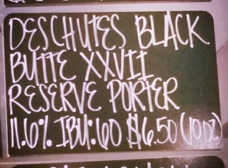 DESCHUTES BLACK
BUTTE XXVII
RESERVE PORTER
11.6% IBU:60 $6.50 (10oz)